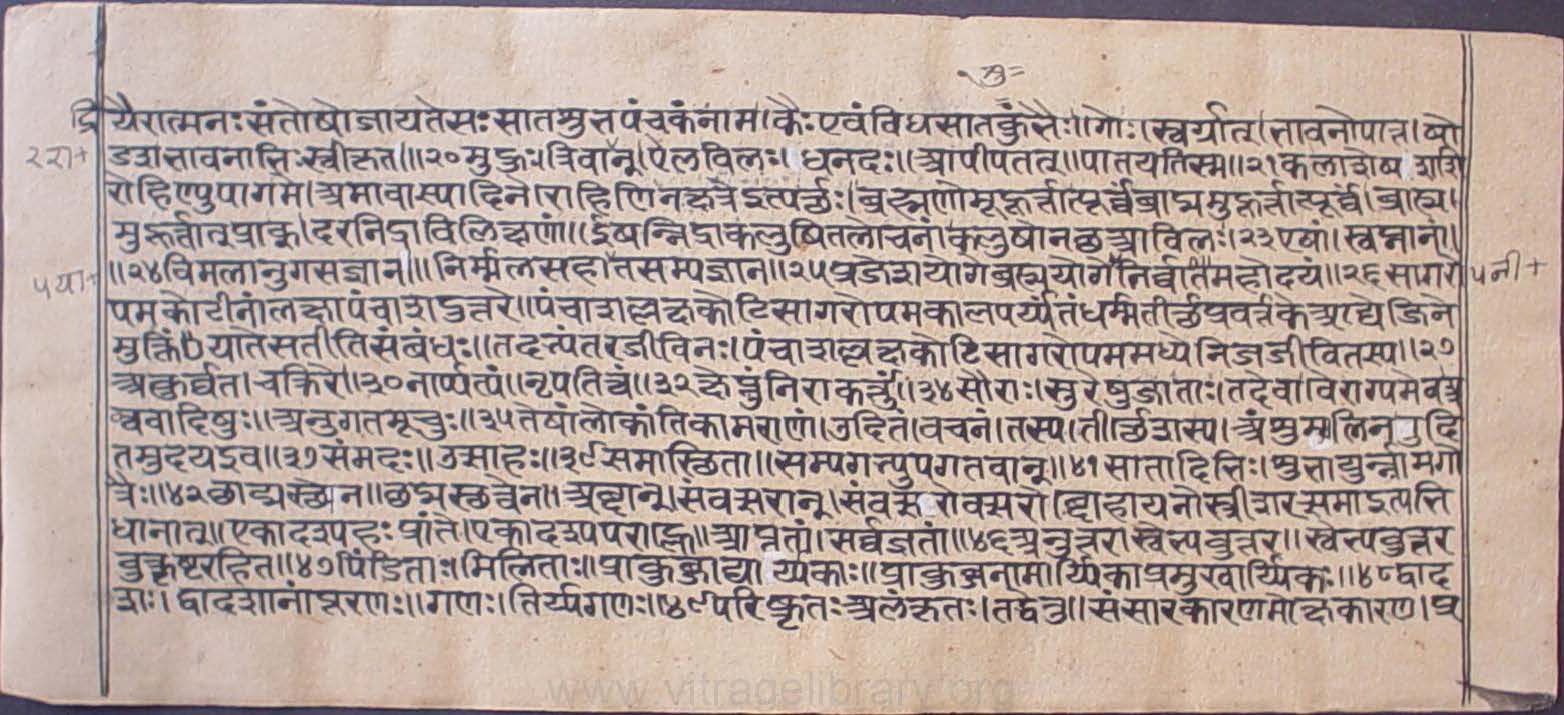 द्रियैरात्मनःसंतोषोजायतेसःसातमुत्तपंचकंनाम।कैःएवंविधसातकुंतैः॥गोः।स्वर्गात्।त्तावनोपात्त।षो
२२रा+ डशत्तावनात्तिःस्वीकृत॥।२०मुक्तः।दिवान्।ऐलविलः।धनदः॥आपीपतत्॥पातयतिस्म॥२१कलाशेषशशि
रोहिण्युपागमे।अमावास्यादिने।रोहिणिनक्षत्रेइत्यर्छः।ब्रह्मणोमूहूर्त्तात्पूर्वंब्राह्ममुहूर्त्तात्पूर्वं।ब्राह्म।
मुहूर्त्तात्प्राक्।दरनिद्राविलिक्षणां॥ईषन्निद्राकलुषितलोचनां।कलुषोनछआविलः।२३एषां।स्वप्नानां॥
५या+ ॥२४विमलानुगसज्ञान॥।निर्म्मलसहोतसम्यज्ञान॥२५प्रजेशयोगेब्रह्मयोगेनिर्वातिमहोदयं॥२६सागरो ५नी+
पमकोटीनांलक्षापंचाशदुत्तरे॥पंचाशल्लक्षकोटिसागरोपमकालपर्य्यंतंधर्म्मतीर्छप्रवर्त्तकेआद्येजिने
मुक्तिंयातेसतीतिसंबंधः॥तदभ्यंतरजीविनः।पंचाशल्लक्षकोटिसागरोपममध्येनिजजीवितस्य॥२७
अकुर्वत।चक्रिरे॥३०नार्प्पत्यं॥नृपतित्वं॥३२क्षेप्तुंनिराकर्त्तुं॥३४सौराः।सुरेषुजाताः।तदेवा।वैराग्यमेवअ
श्ववादिषुः॥अनुगतमूचुः॥३५तेषांलोकांतिकामराणां।उदितं।वचनं।तस्य।तीर्छशस्य।अंशुमालिन्उदि
तमुदयइव॥३७संमदः॥उत्साहः॥३९समास्छिता॥सम्यगत्युपगतवान्॥४१सातादित्तिः।भुत्ताद्युर्न्नामगो
त्रैः॥४२छाद्मस्छेन॥छद्मस्छत्वेन॥अब्दान्।संवत्सरान्।संवत्सरोवत्सरो।ब्दोहायनोस्त्रीशरत्समाइत्यत्ति
धानात्॥एकादश्यहःप्रांते।एकादश्यपराह्णे॥आप्तृतां।सर्वज्ञतां॥४६अनुत्तरास्वेत्पवुत्तर॥स्वेत्पवुत्तर
वुत्कृष्टरहित॥४७पिंडिताः।मिलिताः॥प्राकुब्जाद्यार्य्यिकाः॥प्राकुब्जनामार्य्यिकाप्रमुखार्य्यिकः॥४८द्वाद
शः।द्वादशानांप्तरणः॥गणः।तिर्य्यग्गणः॥४९परिष्कृतःअलंकृतः।तद्वेत्रु॥संसारकारणमोक्षकारण।प्र
www.vitragelibrary.org